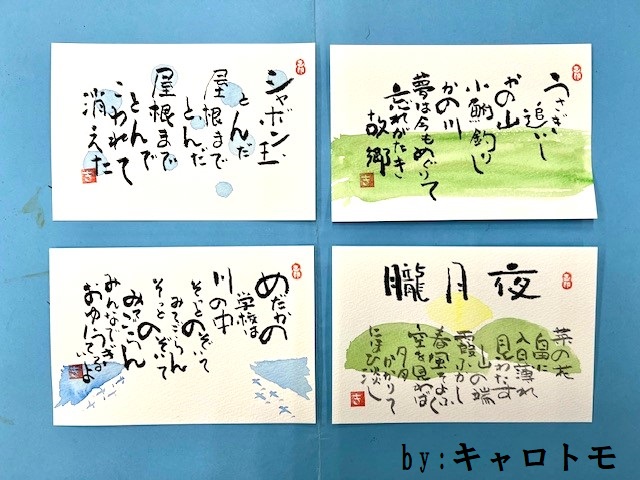 シャボン玉
とんだ
屋根まで
とんだ
屋根まで
とんで
こわれて
消えた
うさぎ
追いし
かの山
小鮒釣りし
かの川
夢は今もめぐりて
忘れがたき
故郷
めだかの
学校は
川の中
そっとのぞいて
みてごらん
そっとのぞいて
みてごらん
みんなで
おゆうぎ
しているよ
朧月夜
菜の花
畠に
入日薄れ
見わたす
山の端
霞ふかし
春風そよふく
空を見れば
夕月
かかりて
にほひ淡し
by:キャロトモ